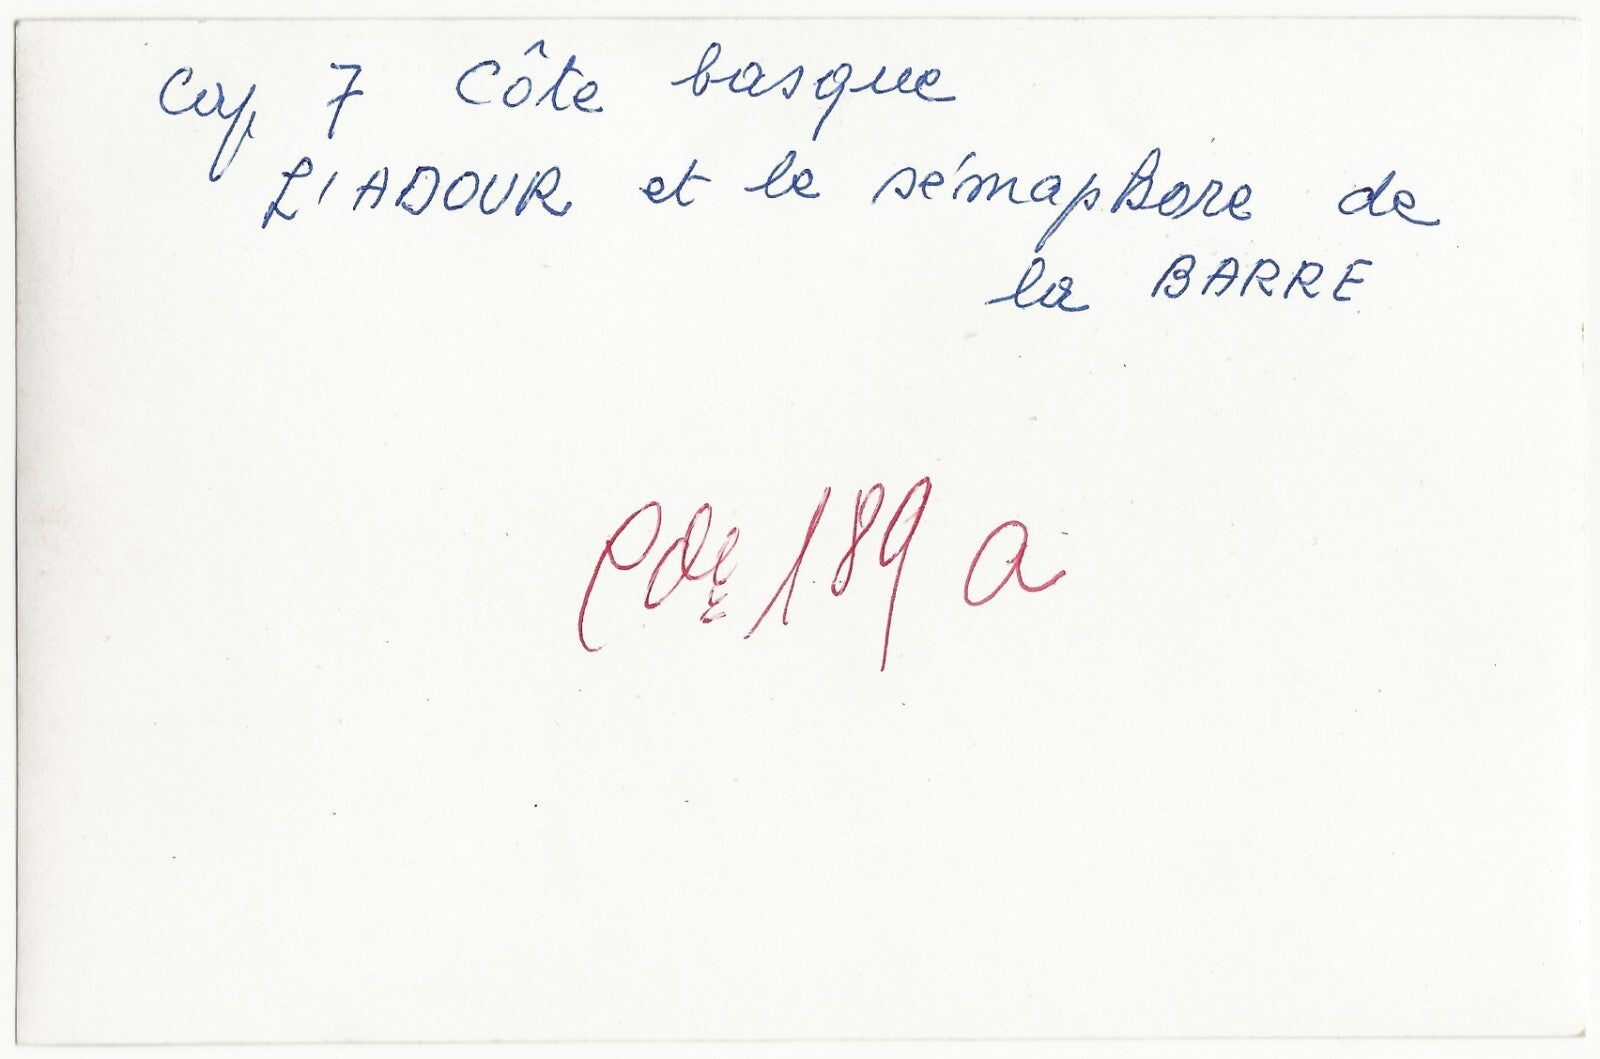 7 Côte basque
L'ADOUR et le sémaphore de
la BARRE
189 a